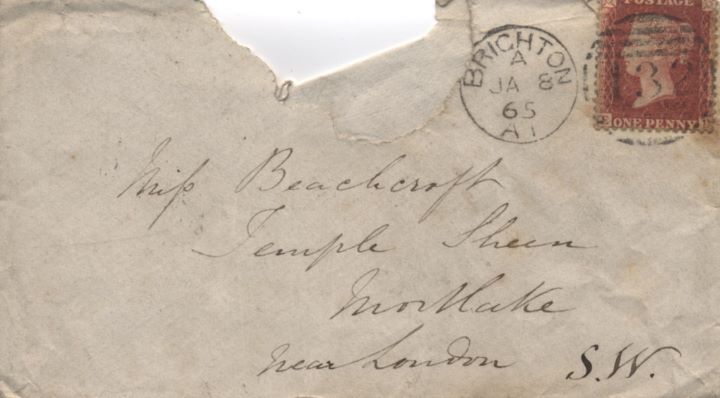 POSTAGE
BRIGHTON
A
JA 8
65
A1
132
ONE PENNY
Miss Beachcroft
Temple Sheen
Mortlake
near London S.W.